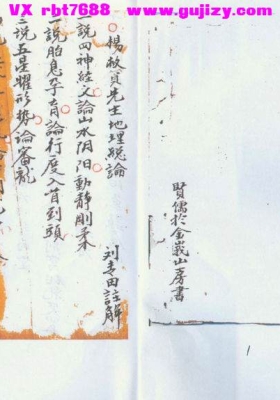 VX rbt7688
www.gujizy.com
賢儒於金嵗山房書
楊救貧先生地理總論
刘青田註解
一說四神經文論山水阴阳動静剛柔
一說胎息孕育論行度入首到頭
一說五星體形势論審龍
1